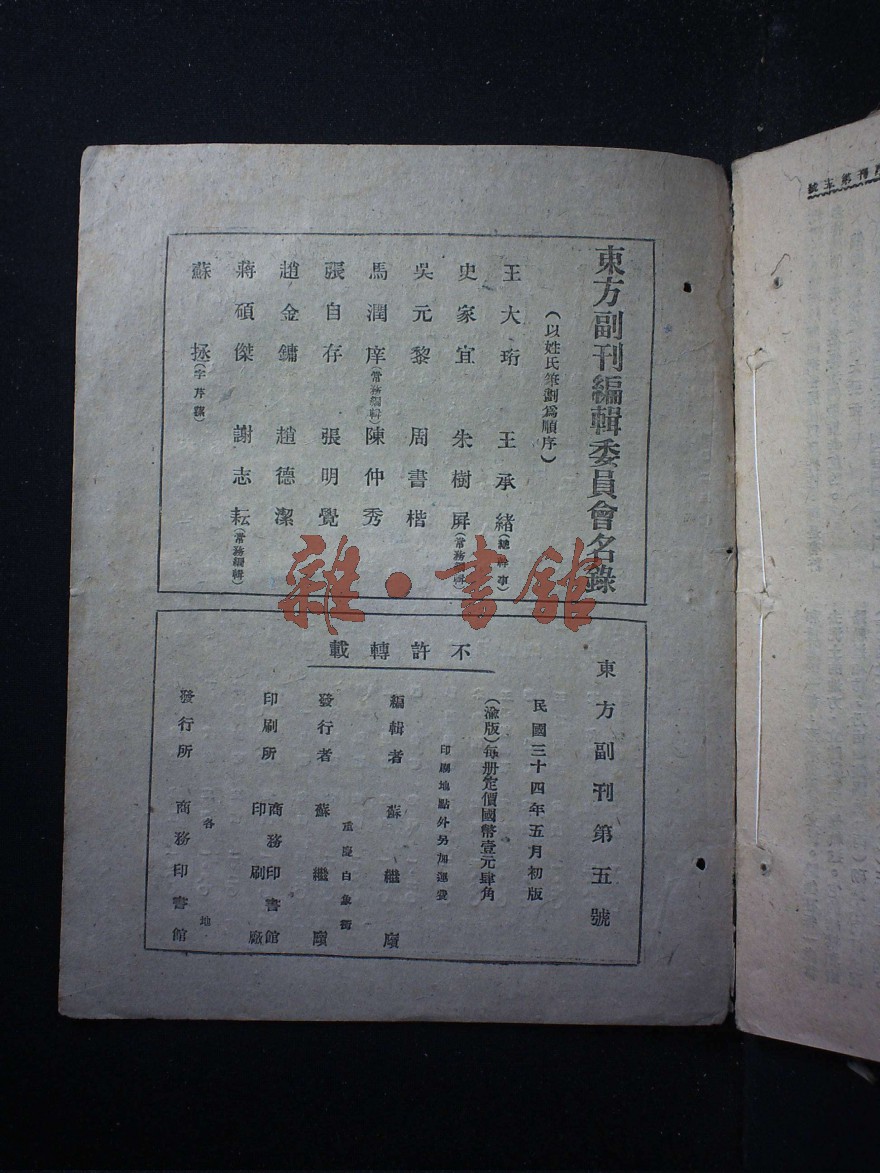 東方副刊編輯委員會名錄
(以姓氏筆劃為順序)
王大珩 王承緒(總幹事)
史家宜 朱樹屏(常務編輯)
吳元黎 周書楷
馬潤庠(常務編輯) 陳仲秀
張自存 張明覺
趙金鏞 趙德潔
蔣碩傑 謝志耘(常務編輯)
蘇拯(字芹蓀)
東方副刊第五號
民國三十四年五月初版
(渝版)每冊定價國幣壹元肆角
印刷地點外另加運費
不許轉載
編輯者 蘇繼廎
重慶白象街
發行者 蘇繼廎
印刷所 商務印書館印刷廠
各地
發行所 商務印書館
雜·書館